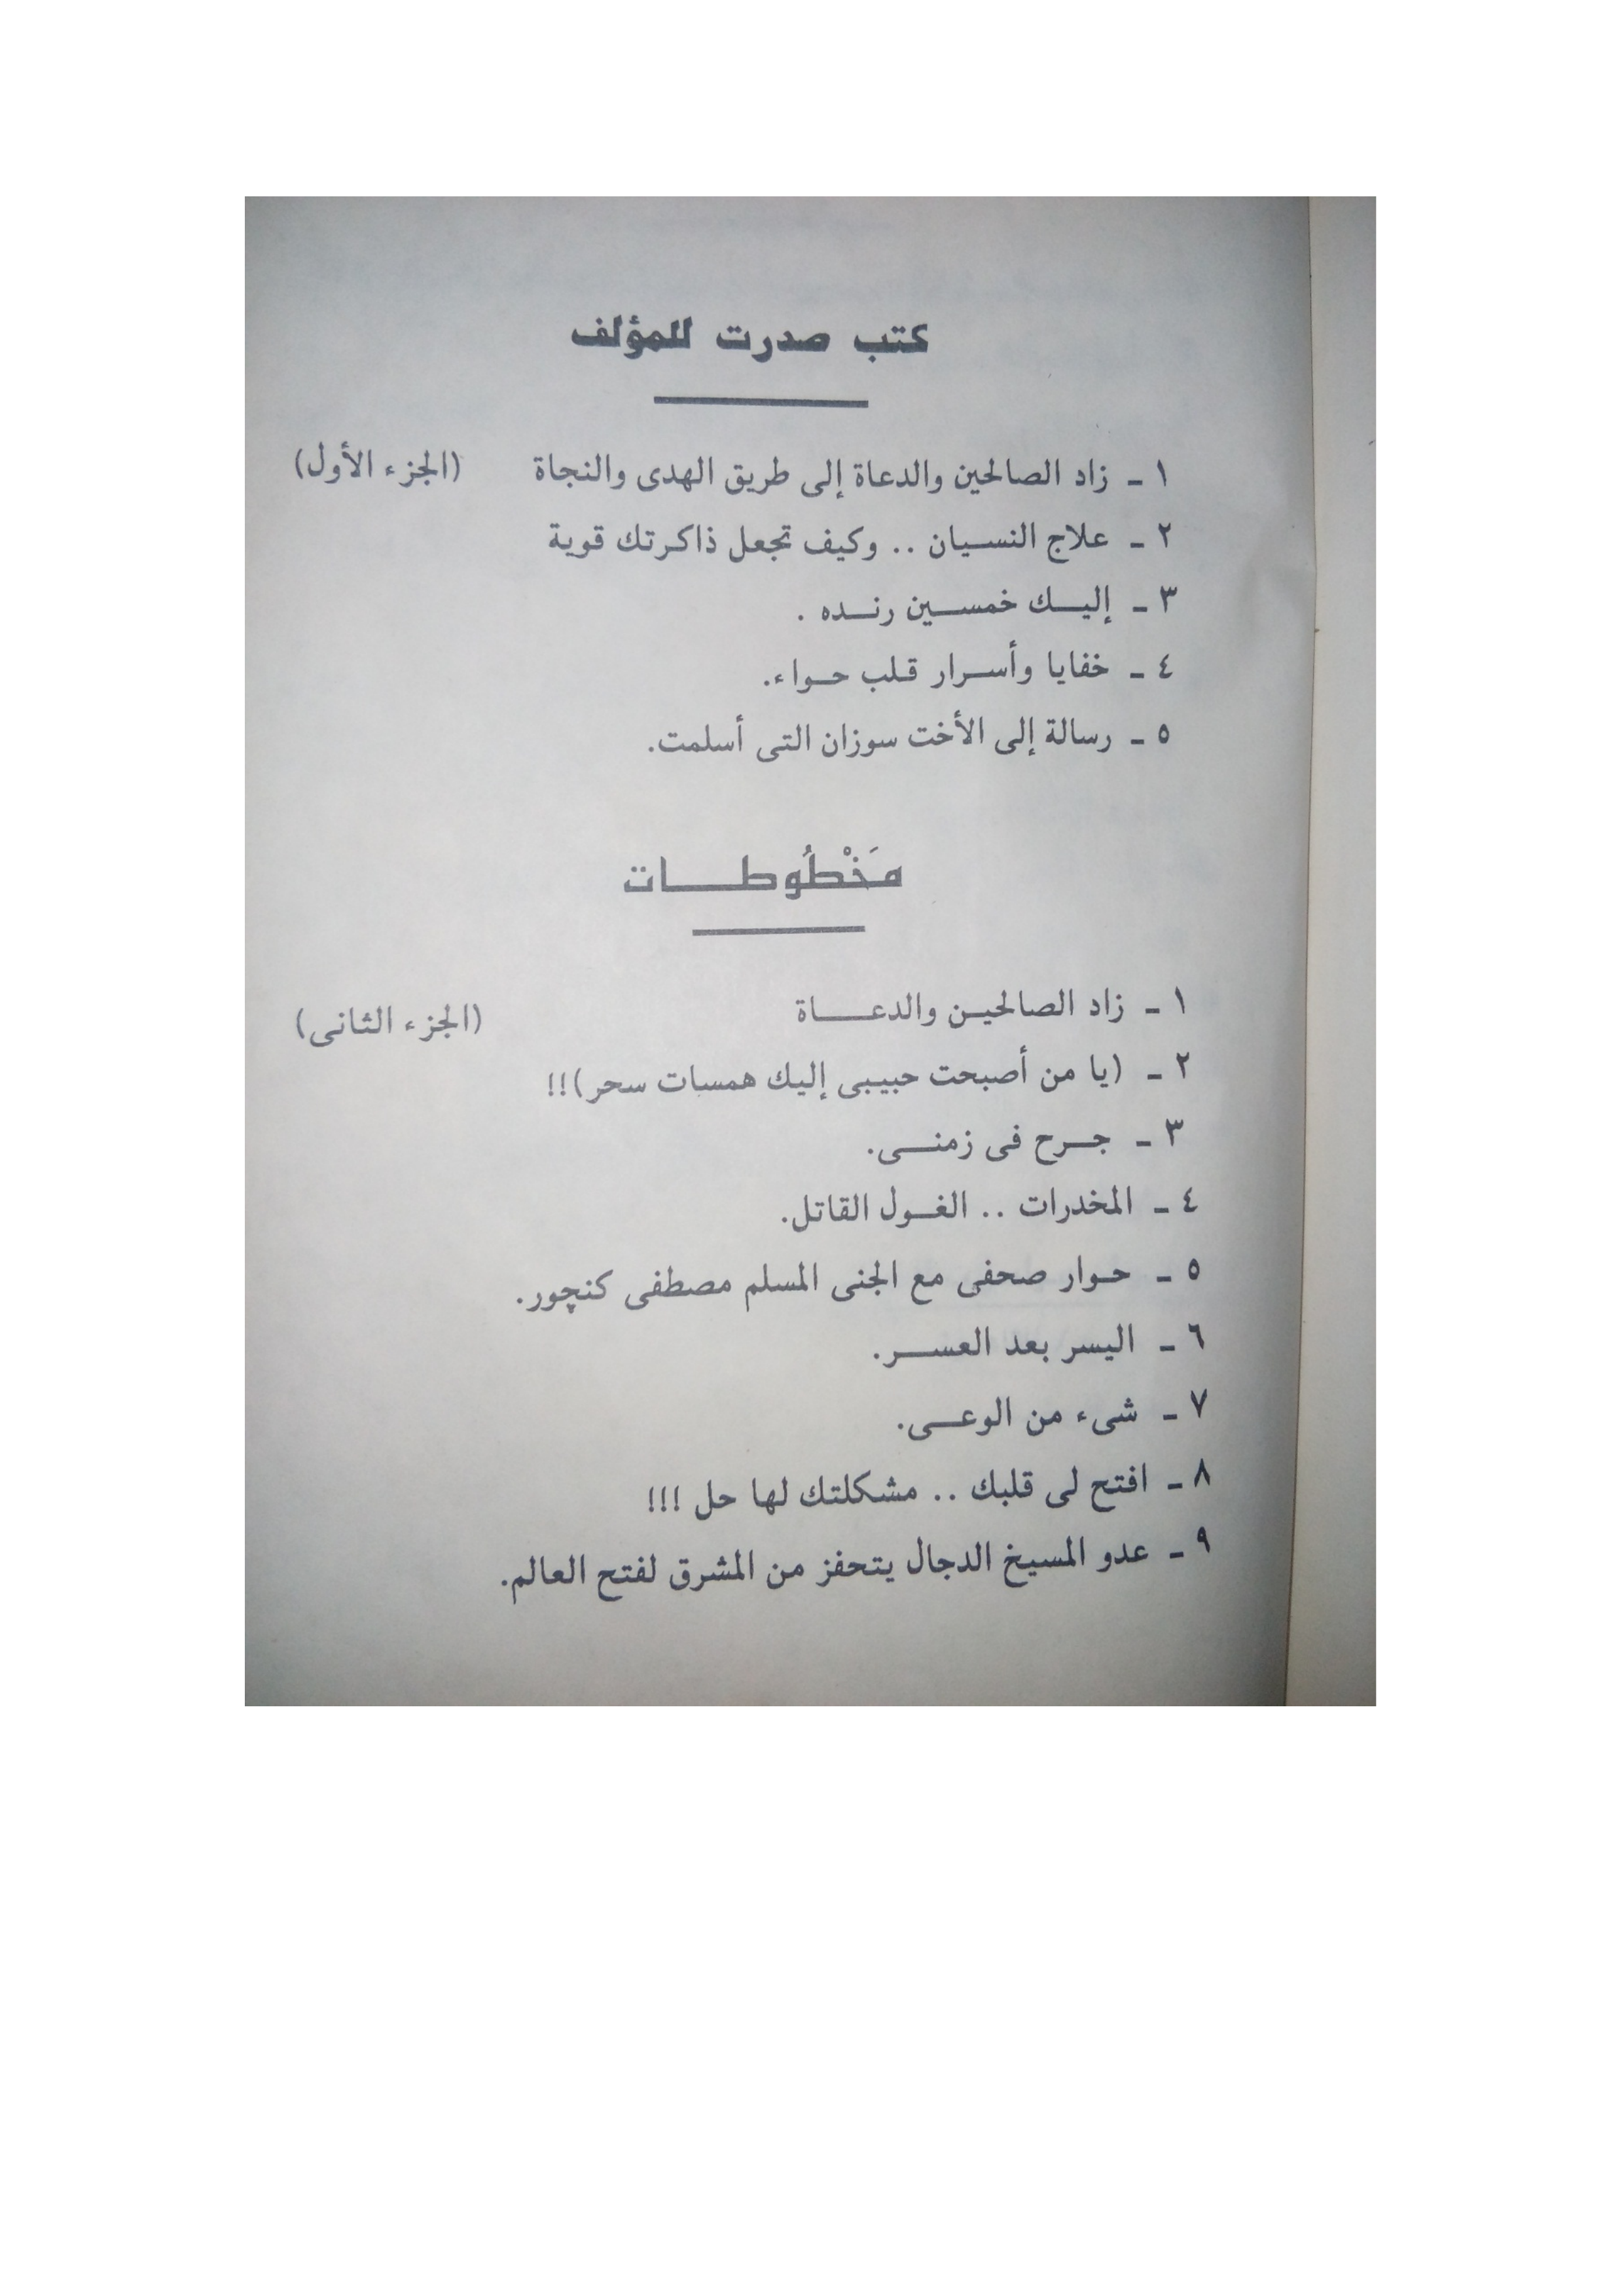 كتب صدرت للمؤلف
١ ـ زاد الصالحين والدعاة إلى طريق الهدى والنجاة (الجزء الأول)
٢ ـ علاج النسيان .. وكيف تجعل ذاكرتك قوية
٣ ـ إليك خمسين رنده .
٤ ـ خفايا وأسرار قلب حواء.
٥ ـ رسالة إلى الأخت سوزان التى أسلمت.
مَخْطُوطات
١ ـ زاد الصالحين والدعاة (الجزء الثانى)
٢ ـ (يا من أصبحت حبيبى إليك همسات سحر)!!
٣ ـ جرح فى زمنى.
٤ ـ المخدرات .. الغول القاتل.
٥ ـ حوار صحفى مع الجنى المسلم مصطفى كنچور.
٦ ـ اليسر بعد العسر.
٧ ـ شىء من الوعى.
٨ ـ افتح لى قلبك .. مشكلتك لها حل !!!
٩ ـ عدو المسيخ الدجال يتحفز من المشرق لفتح العالم.